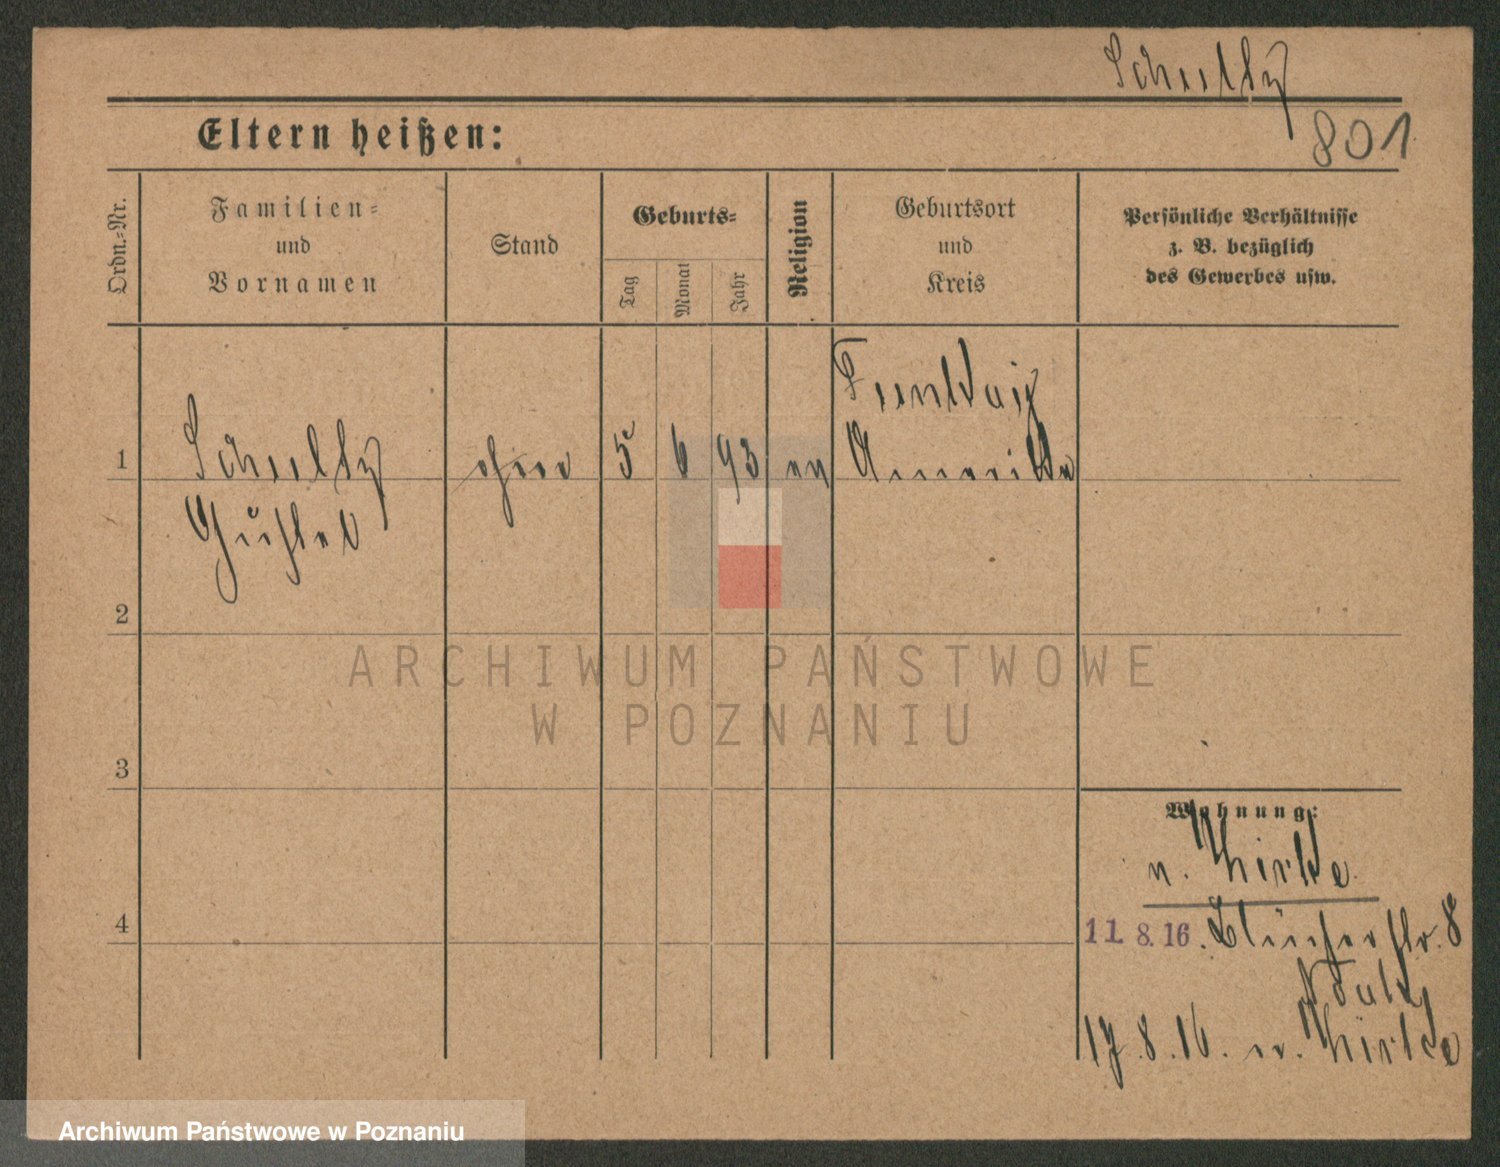 Schultz
801
Eltern heißen:
Ordn.=Nr.
Familien=
und
Vornamen
Stand
Geburts=
Tag
Monat
Jahr
Religion
Geburtsort
und
Kreis
Persönliche Verhältnisse
z. B. bezüglich
des Gewerbes usw.
1
Schultz
ohne
5
6
93
ev
Amerika
2
3
4
Wohnung:
n.
11. 8. 16. Blücherstr. 8
17. 8. 16. n.
ARCHIWUM PAŃSTWOWE
W POZNANIU
Archiwum Państwowe w Poznaniu